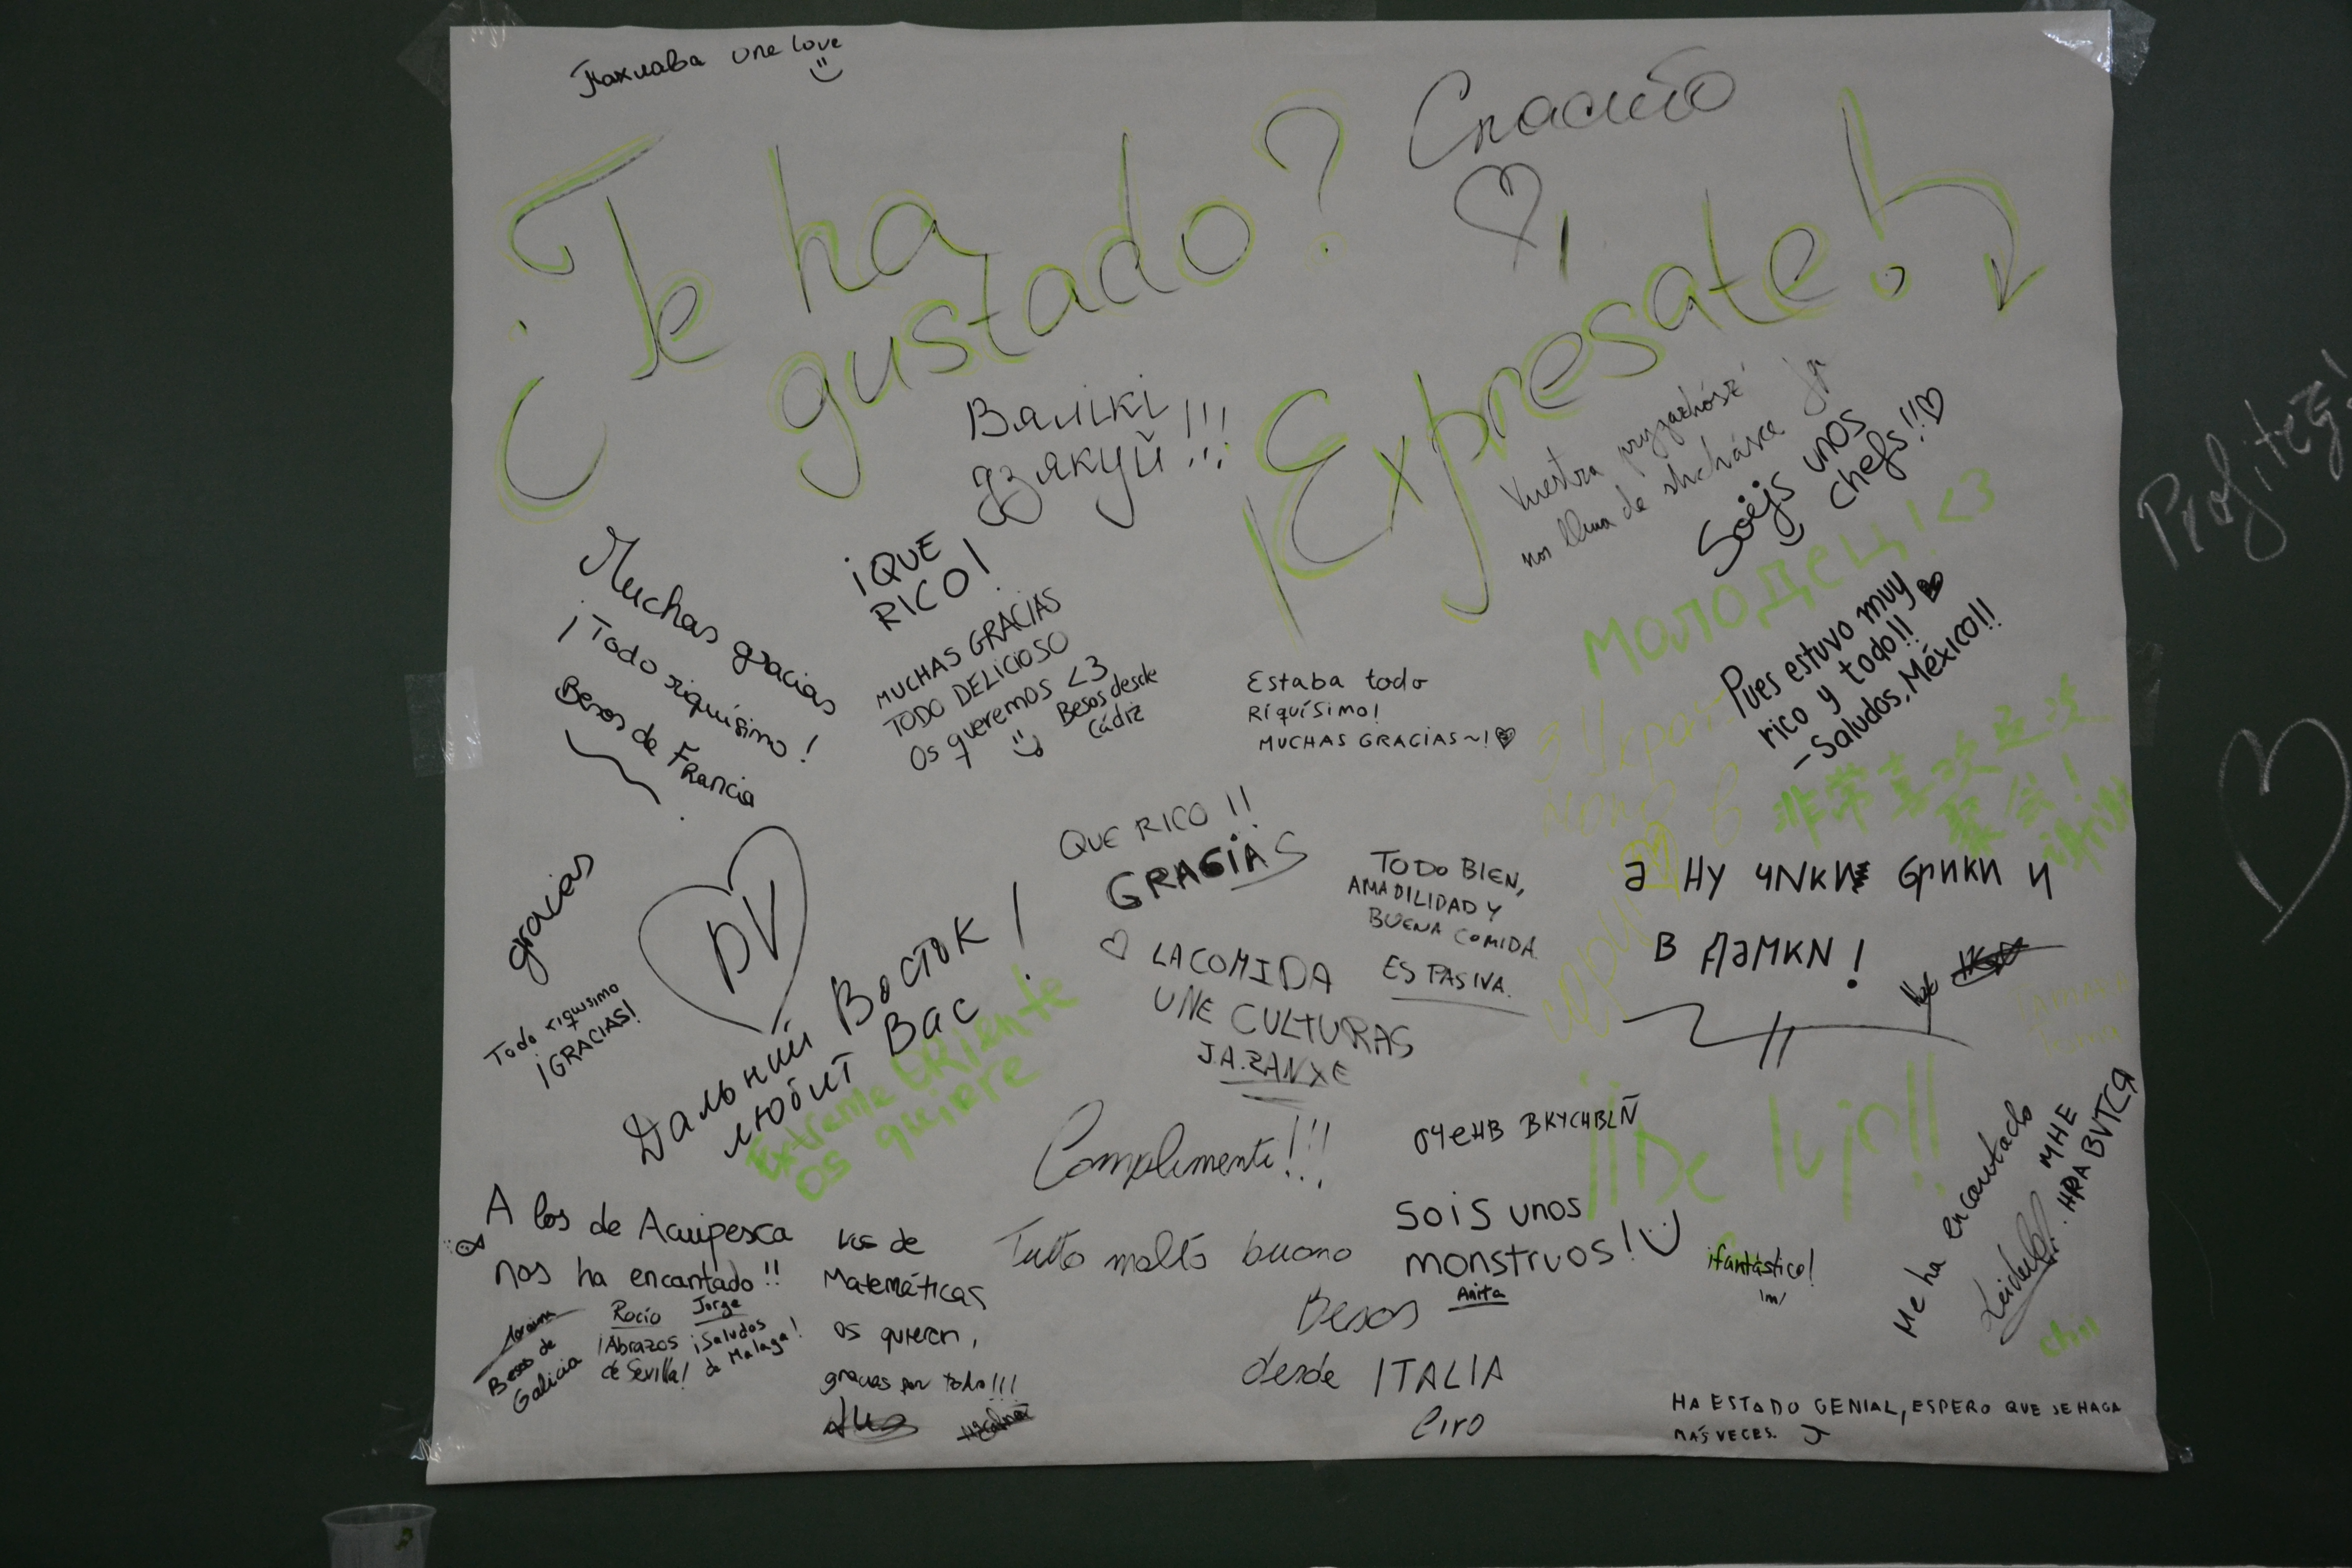 Пахлава one love
Спасибо
¿Te ha
gustado?
¡Expresate!
Вялікі
дзякуй!!!
Vuestra
nos llena de
Soéjs unos
chefs!!♡
молодец! <3
Muchas gracias
¡Todo riquísimo!
Besos de Francia
¡QUE
RICO!
MUCHAS GRACIAS
TODO DELICIOSO
Os queremos <3
Besos desde
Cádiz
Estaba todo
Riquísimo!
MUCHAS GRACIAS~!
Pues estuvo muy
rico y todo!!
-Saludos, México!!
非常喜欢这次
聚会!
谢谢
gracias
Todo riquisimo
¡GRACIAS!
DV
Дальний Восток!
любит Вас
Extremo ORiente
os quiere
QUE RICO!!
GRACIAS
♡ LA COMIDA
UNE CULTURAS
J.A.ZANXE
TODO BIEN,
AMADILIDAD Y
BUENA COMIDA.
ES PASIVA.
в
Complimenti!!!
Tutto molto buono
Besos
desde ITALIA
Ciro
очень ВКУСНЫЙ
¡¡De lujo!!
Sois unos
monstruos!
Anita
¡fantástico!
Me ha encantado
МНЕ
A los de Acuipesca
nos ha encantado!!
Besos de
Galicia
Rocío
¡Abrazos
de Sevilla!
Jorge
¡Saludos
de Malaga!
Los de
Matemáticas
os quieren,
gracias por todo!!!
HA ESTADO GENIAL, ESPERO QUE SE HAGA
MÁS VECES.
Profitez!